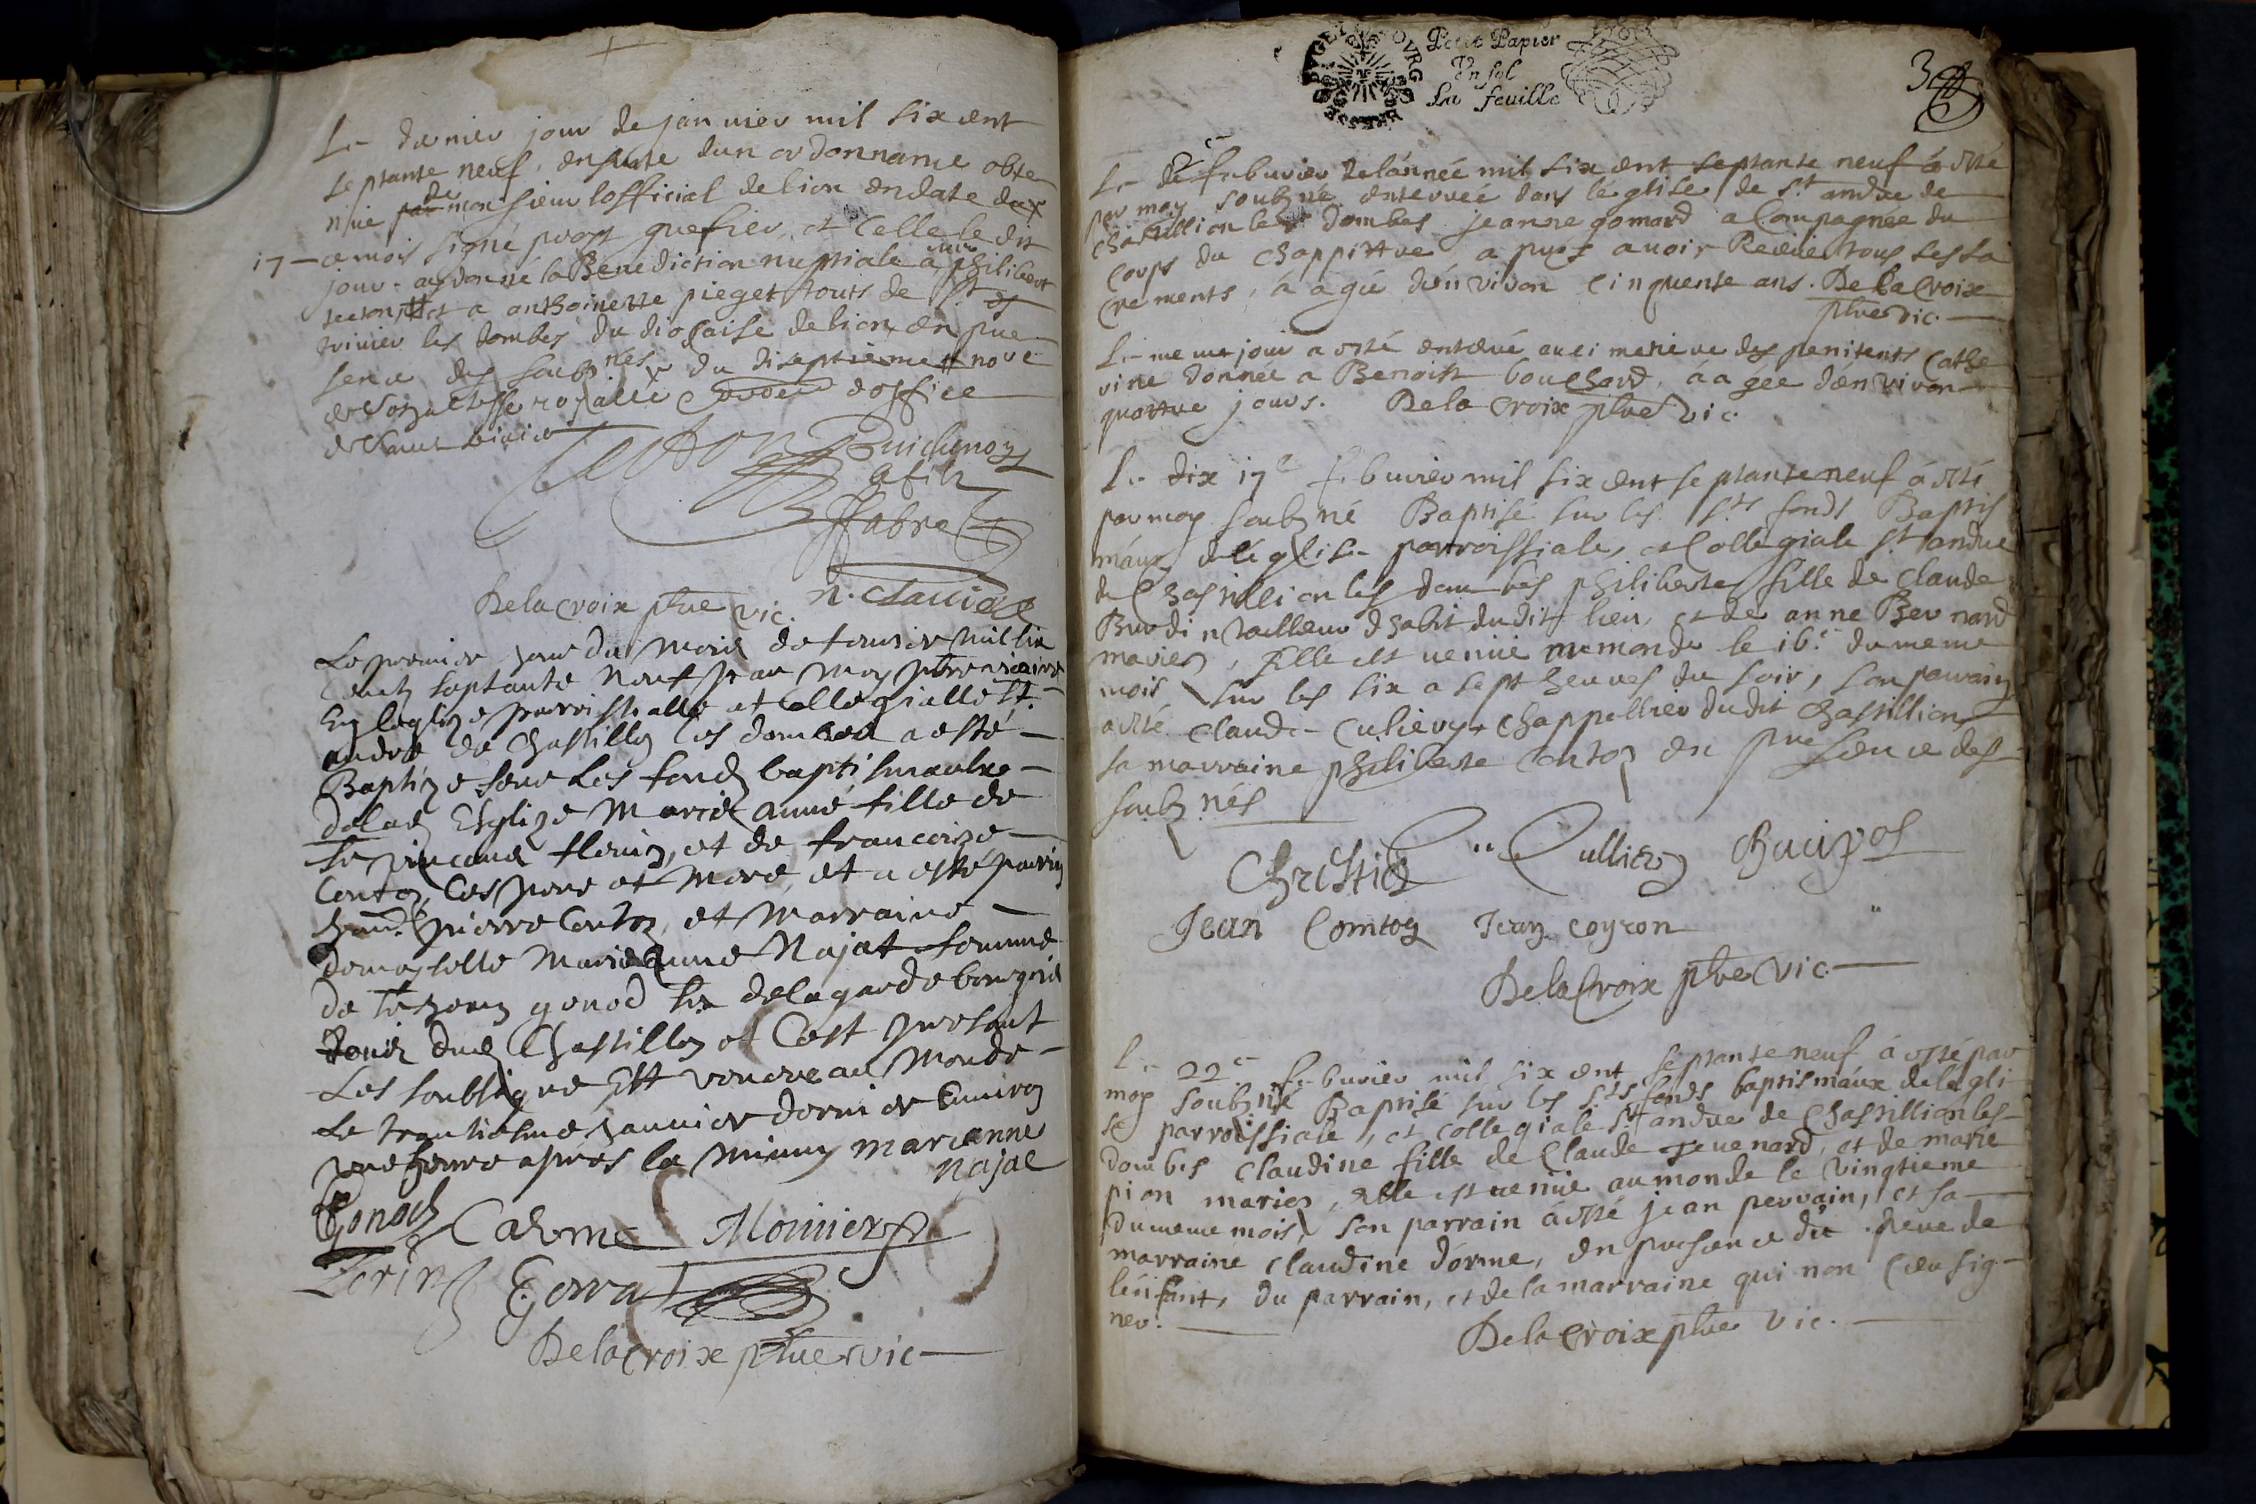 Le dernier jour de janvier mil six cent
septante neuf, ensuite dun ordonnance obte
nüe par de monsieur lofficial de lion en date du
17 — ce mois signé prost greffier, et Celle le dit
jour. ay donné la Benediction nuptiale a philibert
et a anthoinette pieget touts de St
trivier les dombes du diocaise de lion en pre
sence des soubnés
royalle doffice
Guichenon
Fabre
De la croix ptre vic.
Le premier jour du mois de feuvrier mil six
Centz septante neuf par moy ptre vicaire
En leglize parroissialle et collegialle St.
andre de Chastillon les dombes a esté
Baptize sur Les fondz baptismaulx
de lad Esglize Marie anné fille de
Sr vincend fleury, et de francoize
Conton, Ces pere et mere, et a esté parrin
pierre Conton, et Marraine
demoyselle Marie Anne Najat femme
de gonod Sr delagarde bourgois
dud Chastillon et C'est presant
Les soubsigne Est venoue au Monde
Le trentiesme janvier dernier Environ
une heure apres la minuy marianne
Najac
Gonod Carme Monnier
De la croix ptre vic —
Petit Papier
Un sol
La feuille
3
Le de febvrier de l'année mil six cent septante neuf á esté
par moy soubné enterrée dans léglise de St andre de
Chastillion les dombes jeanne gomard aCompagnée du
Corps du Chappittre apres avoir Receu tous ses sa
crements, áagée d'énviron Cinquente ans. De la Croix
ptre vic. —
Le meme jour a esté enterré aux penitents Cathe
rine donnée a Benoist bouchard, áagée d'énviron
quattre jours. De la croix ptre vic.
Le dix 17e febvrier mil six cent septante neuf á esté
par moy soubné Baptisé sur les Sts fonds Baptis
máux de léglise parroissiale, et Collegiale St andre
de Chastillion les dombes philiberte fille de Claude
Burdin tailleur d'habit dudit lieu, et de anne Bernard
mariés, Elle est venüe au monde le 16e du meme
mois sur les six a sept heures du soir, son parrain
a esté Claude Culiery chappellier dudit Chastillion,
sa marraine philiberte Conton en presence des
soubnés
Christin Cullier
Jean Comton Jean coyron
De la Croix ptre vic. —
Le 22e febvrier mil six cent septante neuf á esté par
moy soubné Baptisé sur les Sts fonds baptismáux de légli
se parroissiale, et collegiale St andre de Chastillion les
dombes Claudine fille de Claude Revenard, et de marie
pion mariés, elle est venüe au monde le vingtieme
du meme mois, son parrain á esté jean perrain, et sa
marraine Claudine dórme, en presence du pere de
lénfant, du parrain, et de la marraine qui non sceu sig-
ner. —
De la croix ptre vic. —